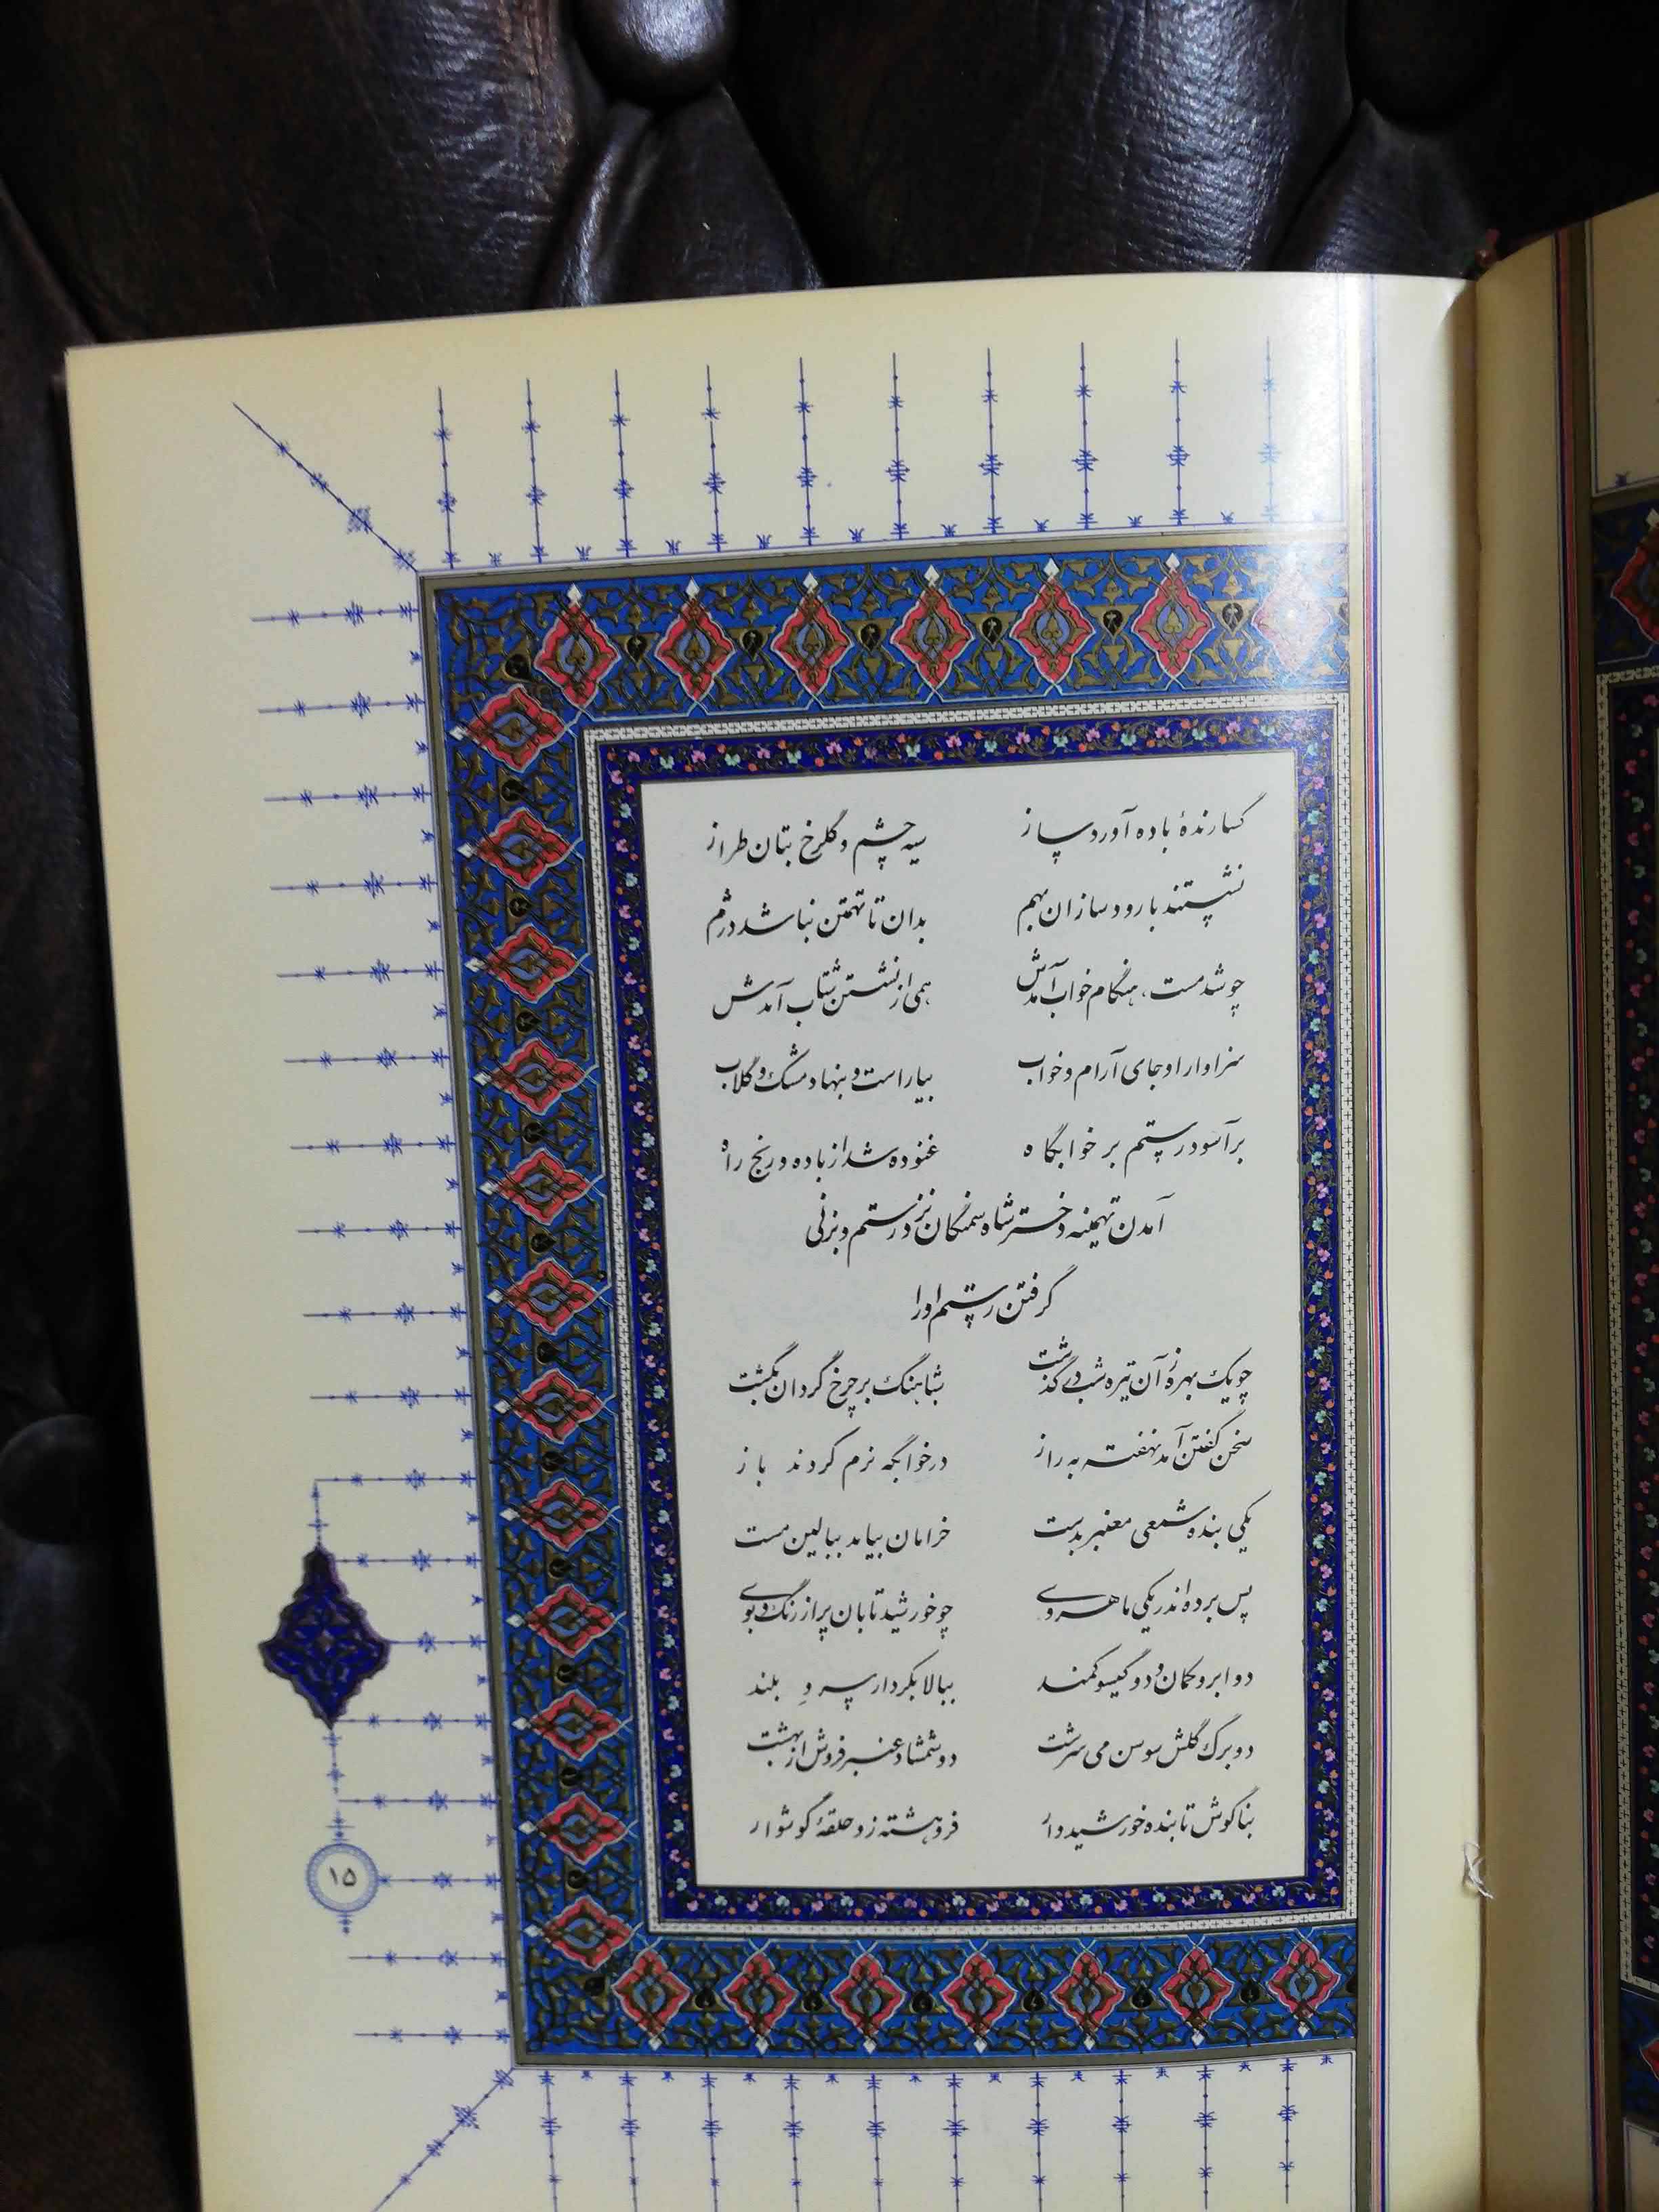 گسارندهٔ باده آورد ساز سیه چشم و گلرخ بتان طراز
نشستند با رودسازان بهم بدان تا تهمتن نباشد دژم
چو شد مست، هنگام خواب آمدش همی از نشستن شتاب آمدش
سزاوار او جای آرام و خواب بیاراست و بنهاد مشک و گلاب
برآسود رستم بر خوابگاه غنوده شد از باده و رنج راه
آمدن تهمینه دختر شاه سمنگان نزد رستم و بزنی
گرفتن رستم او را
چو یک بهره زآن تیره شب درگذشت شباهنگ بر چرخ گردان بگشت
سخن گفتن آمد نهفته به راز در خوابگه نرم کردند باز
یکی بنده شمعی معنبر بدست خرامان بیامد ببالین مست
پس برده اندر یکی ماهروی چو خورشید تابان پر از رنگ و بوی
دو ابرو کمان و دو گیسو کمند ببالا بکردار سرو بلند
دو برگ گلش سوسن می سرشت دو شمشاد عنبر فروش از بهشت
بناگوش تابنده خورشیدوار فروهشته زو حلقهٔ گوشوار
۱۵